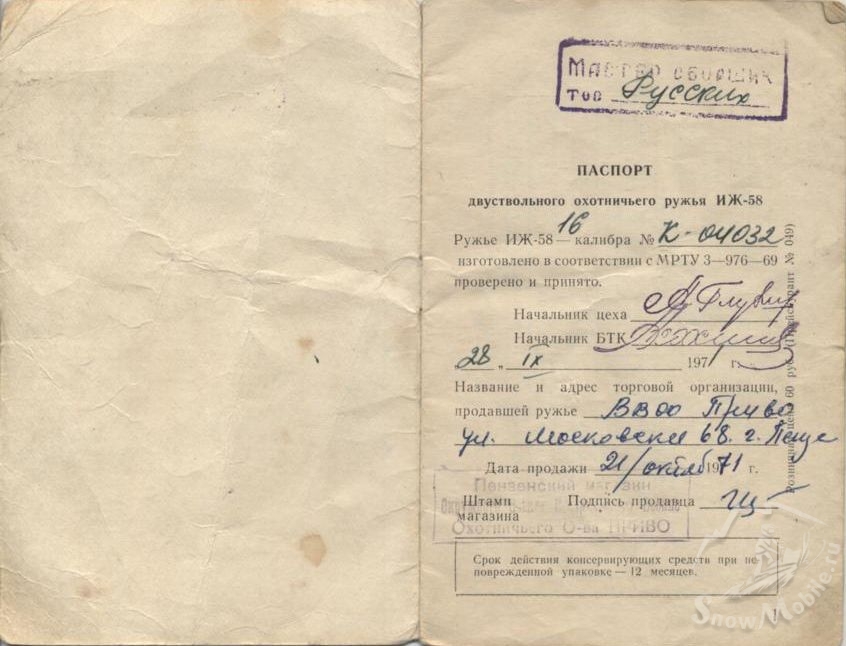 Мастер сборщик
тов Русских
ПАСПОРТ
двуствольного охотничьего ружья ИЖ-58
Ружье ИЖ-58 — 16 калибра № К-04032
изготовлено в соответствии с МРТУ 3—976—69
проверено и принято.
Начальник цеха
Начальник БТК
„28„ IX 1971 г.
Название и адрес торговой организации,
продавшей ружье ВВОО ПриВО
ул. Московская 68. г. Пенза
Дата продажи 21/октяб 1971 г.
Пензенский магазин
Штамп
магазина
Подпись продавца
Охотничьего О-ва ПРИВО
Срок действия консервирующих средств при не-
поврежденной упаковке — 12 месяцев.
1
Розничная цена 60 руб. (Прейскурант № 049)
SnowMobile.ru